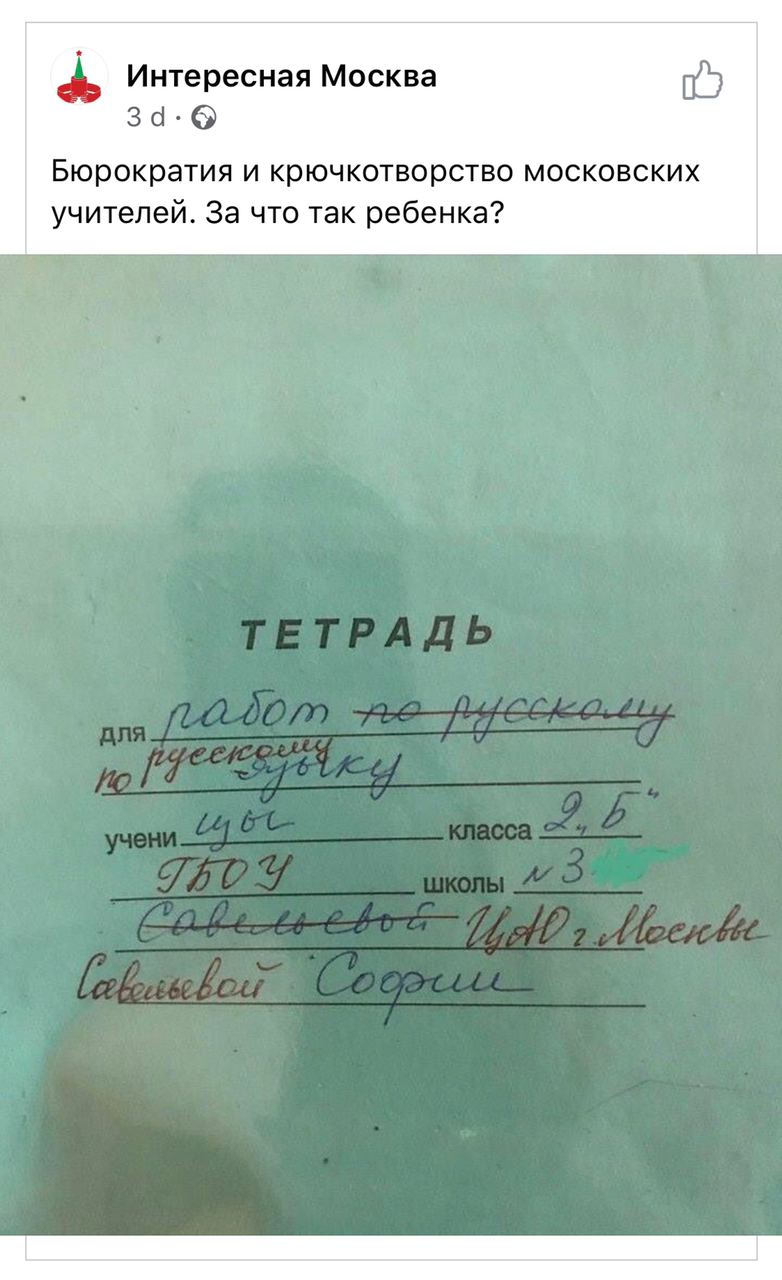 Интересная Москва
3 d
Бюрократия и крючкотворство московских
учителей. За что так ребенка?
ТЕТРАДЬ
для работ по русскому
по русскому языку
ученицы класса 2 „Б“
ГБОУ школы № 3
Савельевой ЦАО г. Москвы
Савельевой Софии